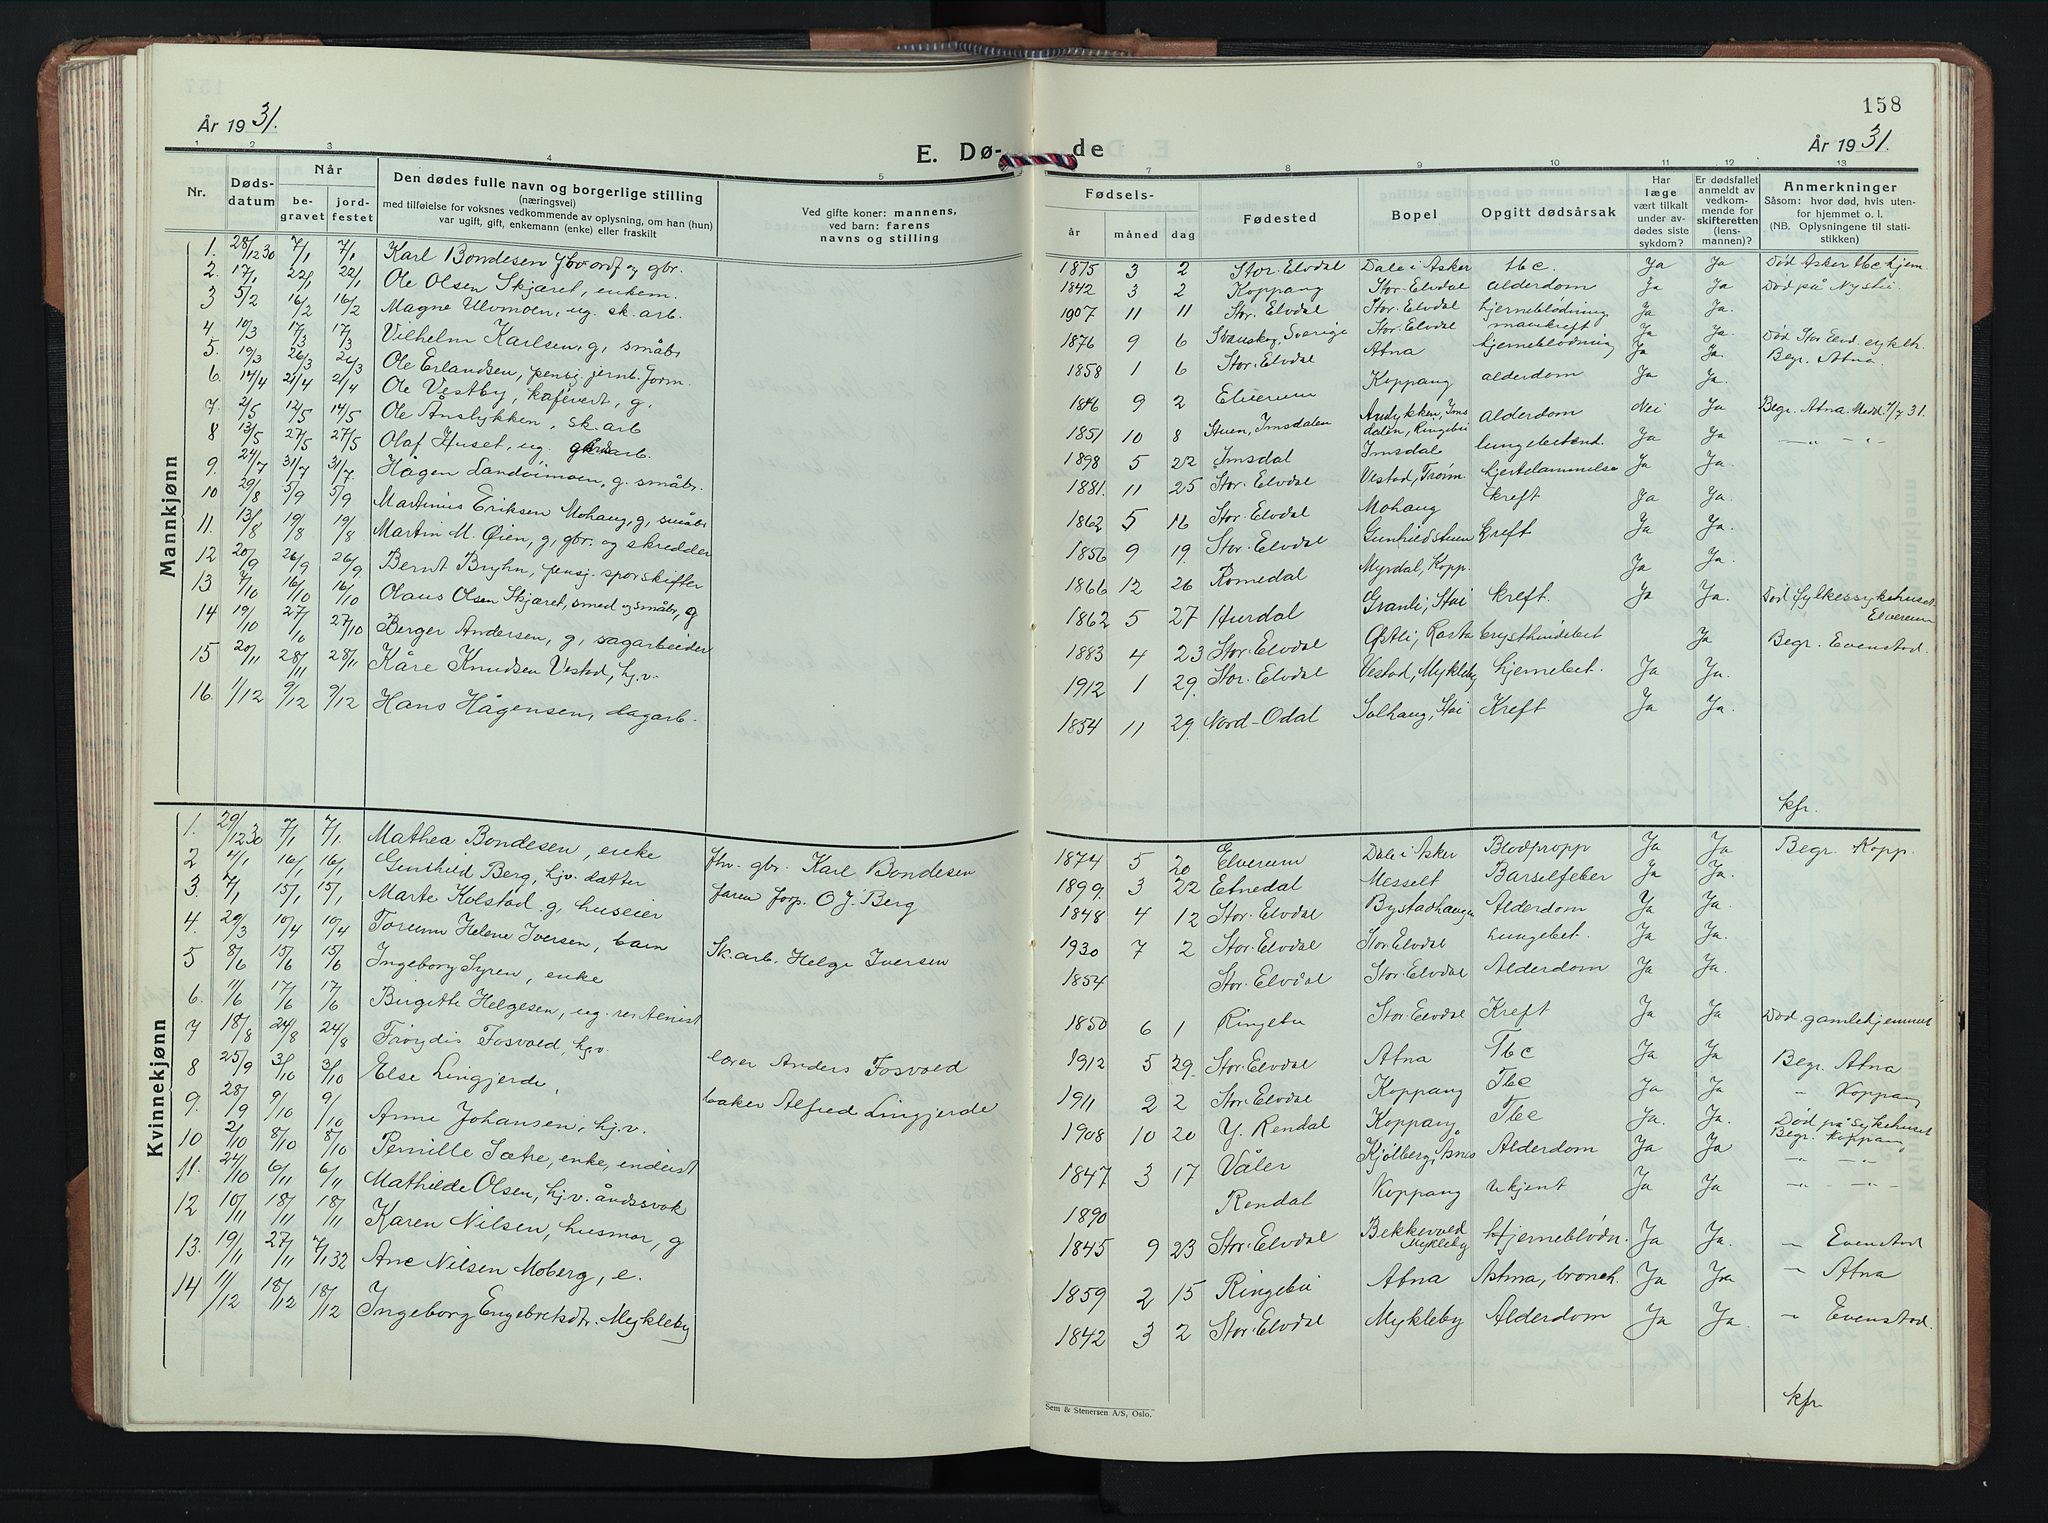 158
År 1931.
År 1931.
E. Dø-
de
1 2 3 4 5
7 8 9 10 11 12 13
Nr.
Døds-
datum
Når
be-
gravet
jord-
festet
Den dødes fulle navn og borgerlige stilling
(næringsvei)
med tilføielse for voksnes vedkommende av oplysning, om han (hun)
var ugift, gift, enkemann (enke) eller fraskilt
Ved gifte koner: mannens,
ved barn: farens
navns og stilling
Fødsels-
år måned dag
Fødested
Bopel
Opgitt dødsårsak
Har
læge
vært tilkalt
under av-
dødes siste
sykdom?
Er dødsfallet
anmeldt av
vedkom-
mende for
skifteretten
(lens-
mannen)?
Anmerkninger
Såsom: hvor død, hvis uten-
for hjemmet o. l.
(NB. Oplysningene til stati-
stikken)
Mannkjønn
1. 28/12 30 7/1 7/1 Karl Bondesen fhv. ordf og gbr. 1875 3 2 Stor-Elvdal Dale i Asker tbc. Ja Ja Død Asker tbc hjem.
2. 17/1 22/1 22/1 Ole Olsen Skjæret, enkem. 1842 3 2 Koppang Stor-Elvdal alderdom Ja Ja Død på
3 5/2 16/2 16/2 Magne Ulvmoen, ug. sk.arb. 1907 11 11 Stor-Elvdal Stor-Elvdal hjerneblødning Ja Ja.
4. 10/3 17/3 17/3 Vilhelm Karlsen, g, småbr. 1876 9 6 Svanskog, Sverige Stor-Elvdal mavekreft Ja Ja. Død Stor-Elvd. sykeh.
5. 19/3 26/3 26/3 Ole Erlandsen, pensj. jernb.form. 1858 1 6 Stor-Elvdal Atna hjerneblødning Ja Ja. Begr. Atna.
6. 14/4 21/4 21/4 Ole Vestby, kafévert, g, 1846 9 2 Elverum Koppang alderdom Ja Ja.
7. 2/5 12/5 14/5 Ole Ånslykken, sk.arb 1851 10 8 Stuen, Imsdalen Imsdalen, Ringebu alderdom Nei Ja Begr. Atna. Medd 7/7 31.
8 13/5 27/5 27/5 Olaf Huset, ug. gårdsarb. 1898 5 22 Imsdal Imsdal lungebetænd. Ja Ja — " — " —
9. 24/7 31/7 31/7 Hågen Landvimoen, g. småbr. 1881. 11 25 Stor-Elvdal Vestad, Trøim. hjertelammelse Ja Ja.
10 29/8 5/9 5/9 Martinus Eriksen Mohaug, g, småbr 1862 5 16 Stor-Elvdal Mohaug kreft Ja Ja.
11. 13/8 19/8 19/8 Martin M. Øien, g, gbr. og skredder 1856 9 19. Stor-Elvdal Gunhildstuen kreft Ja Ja.
12 20/9 26/9 26/9 Bernt Bryhn, pensj. sporskifter 1866 12 26 Romedal Myrdal, Kopp. Ja Ja.
13 7/10 16/10 16/10 Olaus Olsen Skjæret, smed og småbr, g 1862 5 27 Hurdal Granli, Stai kreft. Ja Ja. Død fylkessykehuset Elverum
14 19/10 27/10 27/10 Berger Andersen, g, sagarbeider 1883 4 23 Stor-Elvdal Østli, Rasta brysthindebet Ja Begr. Evenstad.
15 20/11 28/11 28/11 Kåre Knudsen Vestad, hj.v. 1912 1 29. Stor-Elvdal Vestad, Mykleby hjernebet. Ja Ja.
16. 1/12 9/12 9/12 Hans Hågensen, dagarb. 1854 11 29. Nord-Odal Solhaug, Stai Kreft Ja Ja.
kfr.
Kvinnekjønn
1. 29/12 30 7/1 7/1 Mathea Bondesen, enke fhv. gbr. Karl Bondesen 1874 5 20 Elverum Dale i Asker Blodpropp Ja Ja Begr. Kopp.
2 4/1 16/1 16/1 Gunhild Berg, hj.v. datter faren forp. O. J. Berg 1899. 3 22 Etnedal Messelt Barselfeber Ja Ja.
3. 7/1 15/1 15/1 Marte Kolstad g, huseier 1848 4 12 Stor-Elvdal Bystadhaugen Alderdom Ja Ja.
4. 29/3 10/4 10/4 Torunn Helene Iversen, barn Sk.arb. Helge Iversen 1930 7 2 Stor-Elvdal Stor-Elvdal Lungebet. Ja Ja.
5 8/6 15/6 15/6 Ingeborg Syren, enke 1854 Stor-Elvdal Stor-Elvdal Alderdom Ja Ja.
6. 11/6 17/6 17/6 Birgitte Helgesen, ug. 1850 6 1 Ringebu Stor-Elvdal Kreft Ja Ja Død gamlehjemmet
7 18/8 24/8 24/8 Frøydis Fosvold, hj.v. lærer Anders Fosvold 1912 5 29. Stor-Elvdal Atna Tbc Ja Ja Begr. Atna
8 25/9 3/10 3/10 Else Lingjerde, baker Alfred Lingjerde 1911 2 2 Stor-Elvdal Koppang Tbc Ja Ja " Koppang
9. 28/9 9/10 9/10 Anne Johansen, hj.v. 1908 10 20 Y. Rendal Koppang Tbc Ja. Ja. Død på sykehuset Begr. Koppang
10 2/10 8/10 8/10 Pernille Sætre, enke, 1847 3 17 Våler Kjølberg, Asnes Alderdom Ja Ja — " —
11. 24/10 6/11 6/11 Mathilde Olsen, hj.v. åndssvak 1890 Rendal Koppang ukjent Ja Ja — " — " —
12 10/11 18/11 18/11 Karen Nilsen, husmor, g 1845 9 23 Stor-Elvdal Bekkevold Mykleby Hjerneblødn. Ja Ja. " Evenstad
13. 19/11 27/11 7/1 32 Ane Nilsen Moberg, e. 1859 2 15 Ringebu Atna Astma, bronch. Ja Ja " Atna
14 11/12 18/12 18/12 Ingeborg Engebretsdtr. Mykleby 1842 3 2 Stor-Elvdal Mykleby Alderdom Ja Ja. " Evenstad.
kfr.
Sem & Stenersen A/S, Oslo.